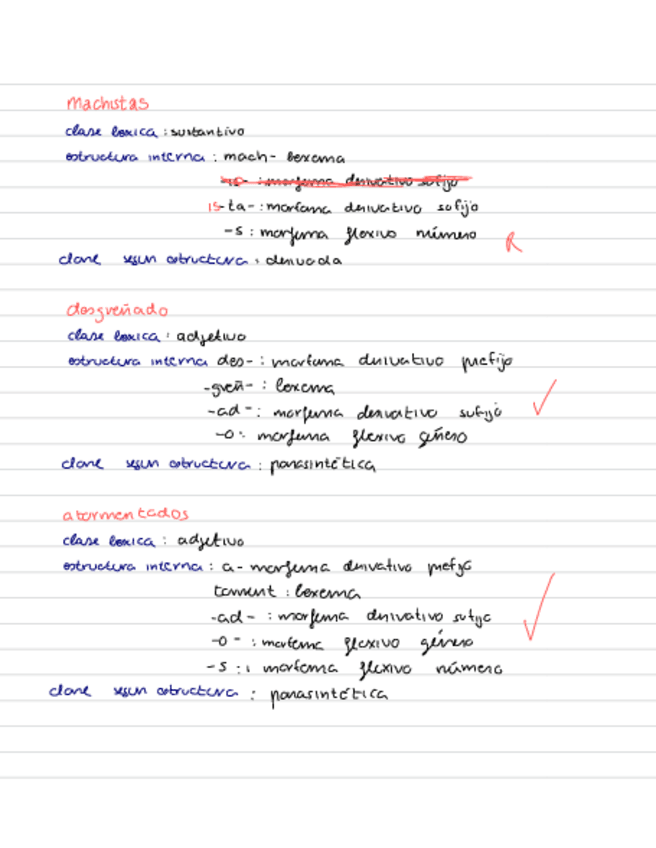 Machistas
clase lexica : sustantivo
estructura interna : mach- lexema
-is- : morfema derivativo sufijo
is-ta- : morfema derivativo sufijo
-s : morfema flexivo número
R
clase segun estructura : derivada
desgreñado
clase lexica : adjetivo
estructura interna des- : morfema derivativo prefijo
-greñ- : lexema
-ad- : morfema derivativo sufijo
-o : morfema flexivo género
clase segun estructura : parasintética
atormentados
clase lexica : adjetivo
estructura interna : a- morfema derivativo prefijo
torment : lexema
-ad- : morfema derivativo sufijo
-o- : morfema flexivo género
-s : morfema flexivo número
clase segun estructura : parasintética